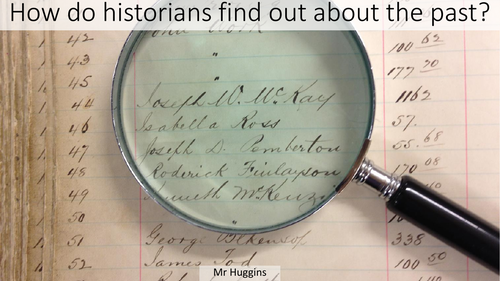 How do historians find out about the past?
42 John Work 100 62
43 " 177 20
45
44 Joseph W. McKay 1162
46 Isabella Ross 57.
47 Joseph D. Pemberton 55.68
48 Roderick Finlayson 170 08
49 Kenneth McKenzie
50 "
51 George 338
52 James Tod 100 50
Mr Huggins